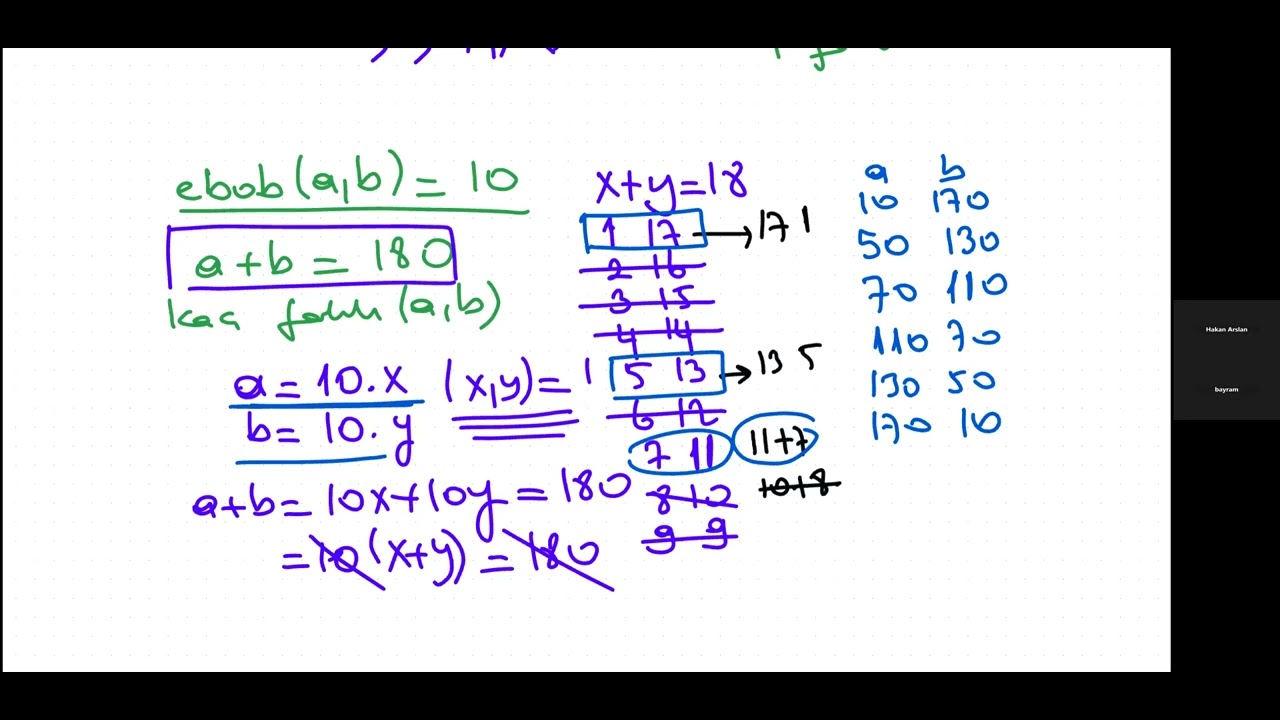 ebob(a,b) = 10
a+b = 180
kaç farklı (a,b)
a = 10.x (x,y) = 1
b = 10.y
a+b = 10x+10y = 180
= 10(x+y) = 180
x+y=18
1 17 → 17 1
2 16
3 15
4 14
5 13 → 13 5
6 12
7 11 11+7
8 10 10+8
9 9
a b
10 170
50 130
70 110
110 70
130 50
170 10
Hakan Arslan
bayram